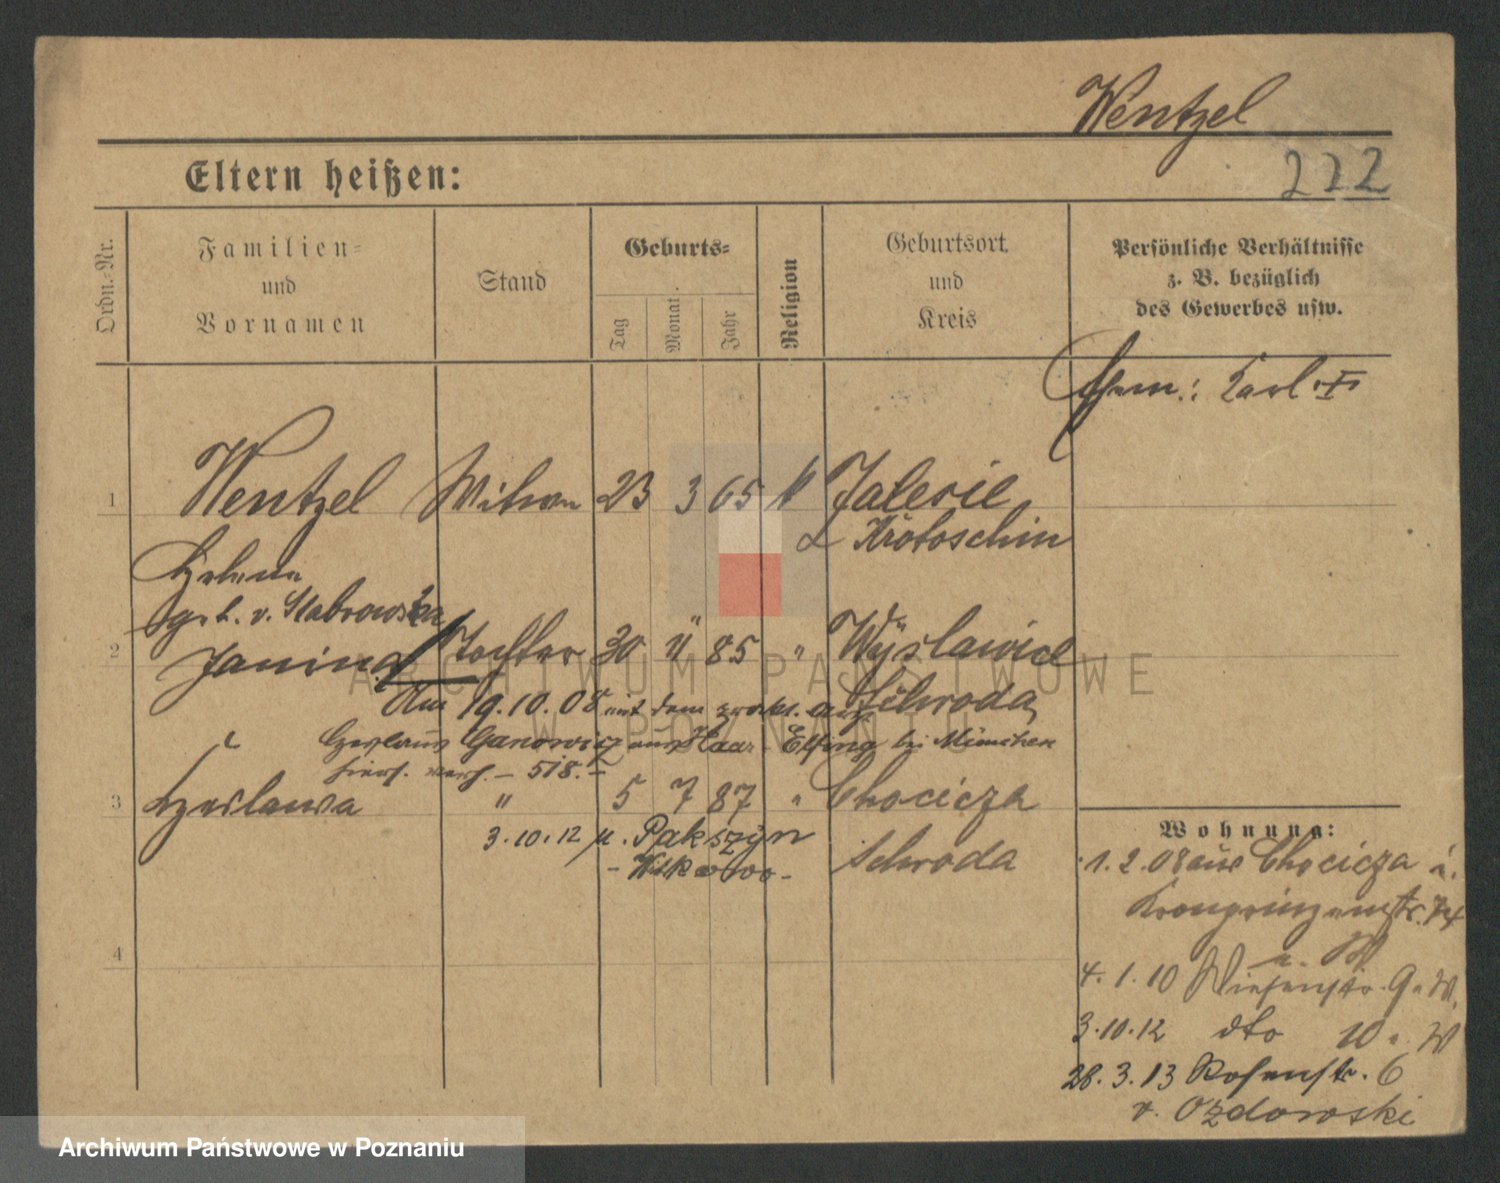 Wentzel
222
Eltern heißen:
Ordn.-Nr.
Familien-
und
Vornamen
Stand
Geburts-
Tag
Monat
Jahr
Religion
Geburtsort
und
Kreis
Persönliche Verhältnisse
z. B. bezüglich
des Gewerbes usw.
Ehem.: Karl †
1 Wentzel Witwe 23 3 65 k Zalesie
Krotoschin
Helena
geb. v. Stabrowska
2 Janina Tochter 30 11 85 " Wyslawice
Am 19.10.08 mit dem aus Schroda
Czeslaus Ganowicz aus Haar-Elfing bei München
hiers. verh. – 518. –
3 Czeslawa " 5 7 87 " Chocicza
3.10.12 n. Pakszyn
- Witkowo - Schroda
4
Wohnung:
1.2.08 aus Chocicza n.
Kronprinzenstr. 74
b. W
4.1.10 Wiesenstr. 9 b. W.
3.10.12 dto 10 b. W
28.3.13 Rosenstr. 6
v. Ozdowski
ARCHIWUM PAŃSTWOWE
W POZNANIU
Archiwum Państwowe w Poznaniu